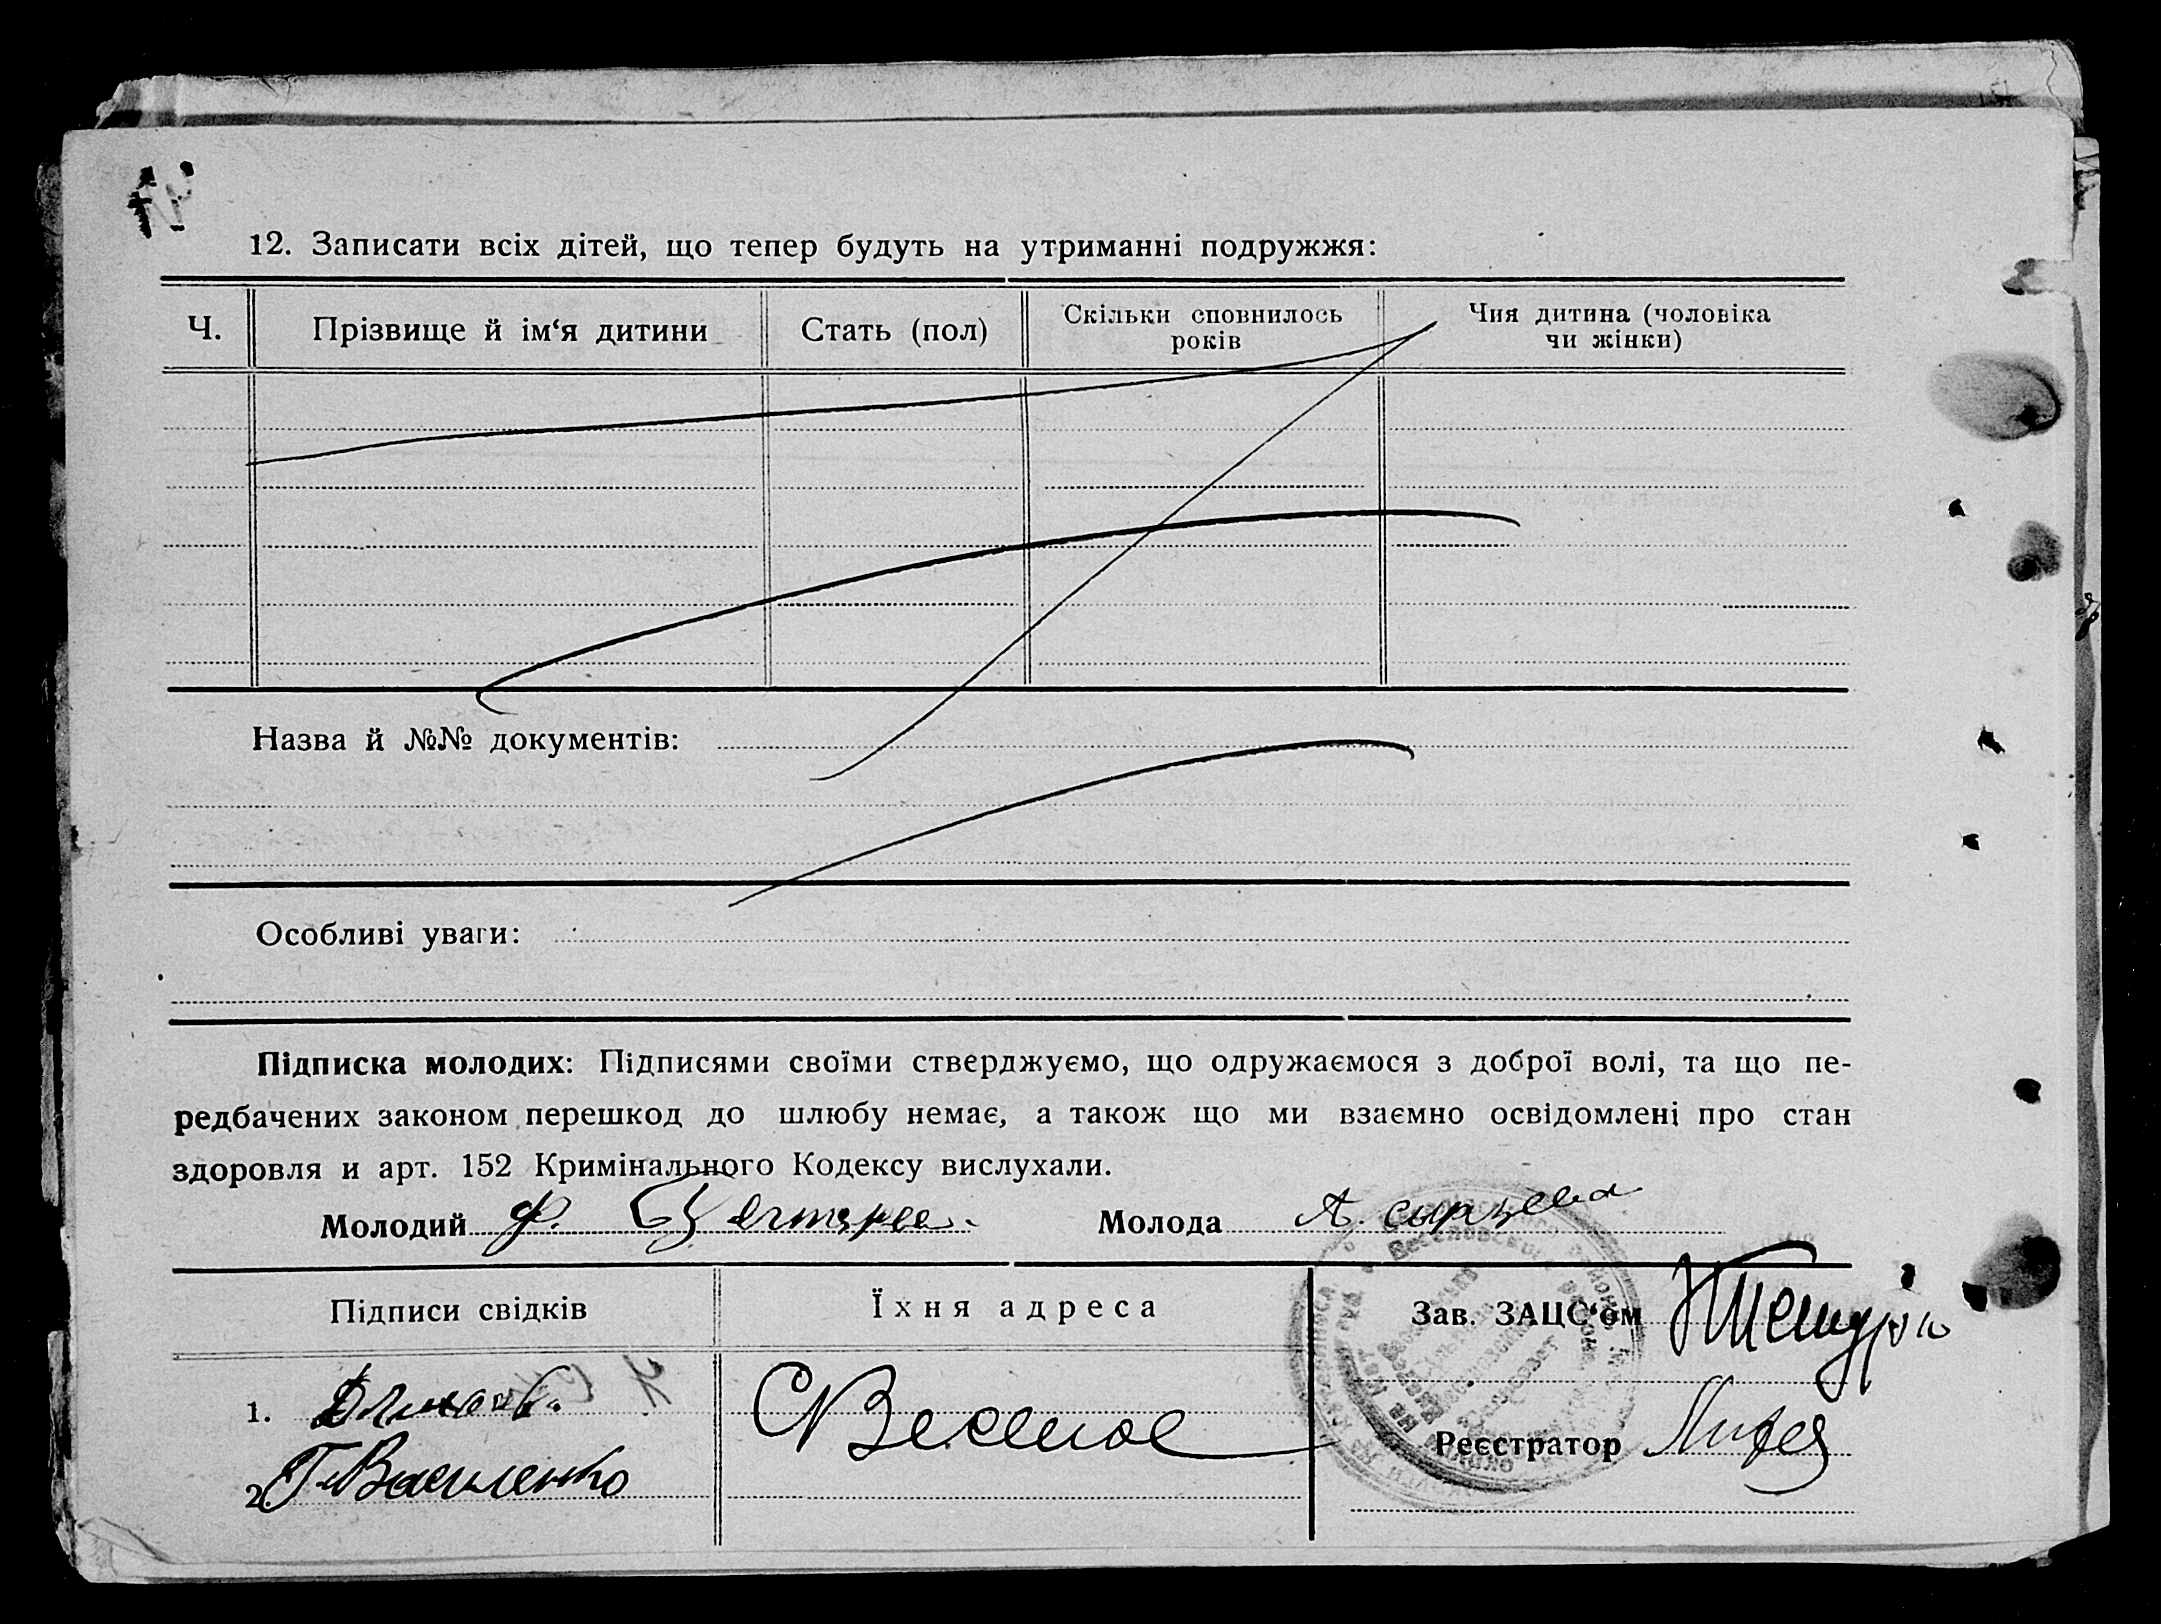 12. Записати всіх дітей, що тепер будуть на утриманні подружжя:
Ч. Прізвище й ім‘я дитини Стать (пол) Скільки сповнилось років Чия дитина (чоловіка чи жінки)
Назва й №№ документів:
Особливі уваги:
Підписка молодих: Підписями своїми стверджуємо, що одружаємося з доброї волі, та що пе-
редбачених законом перешкод до шлюбу немає, а також що ми взаємно освідомлені про стан
здоровля и арт. 152 Кримінального Кодексу вислухали.
Молодий Ф. Молода А. сырцева
Підписи свідків Їхня адреса Зав. ЗАЦС‘ом
1. С Веселое
2. Василенко Реєстратор